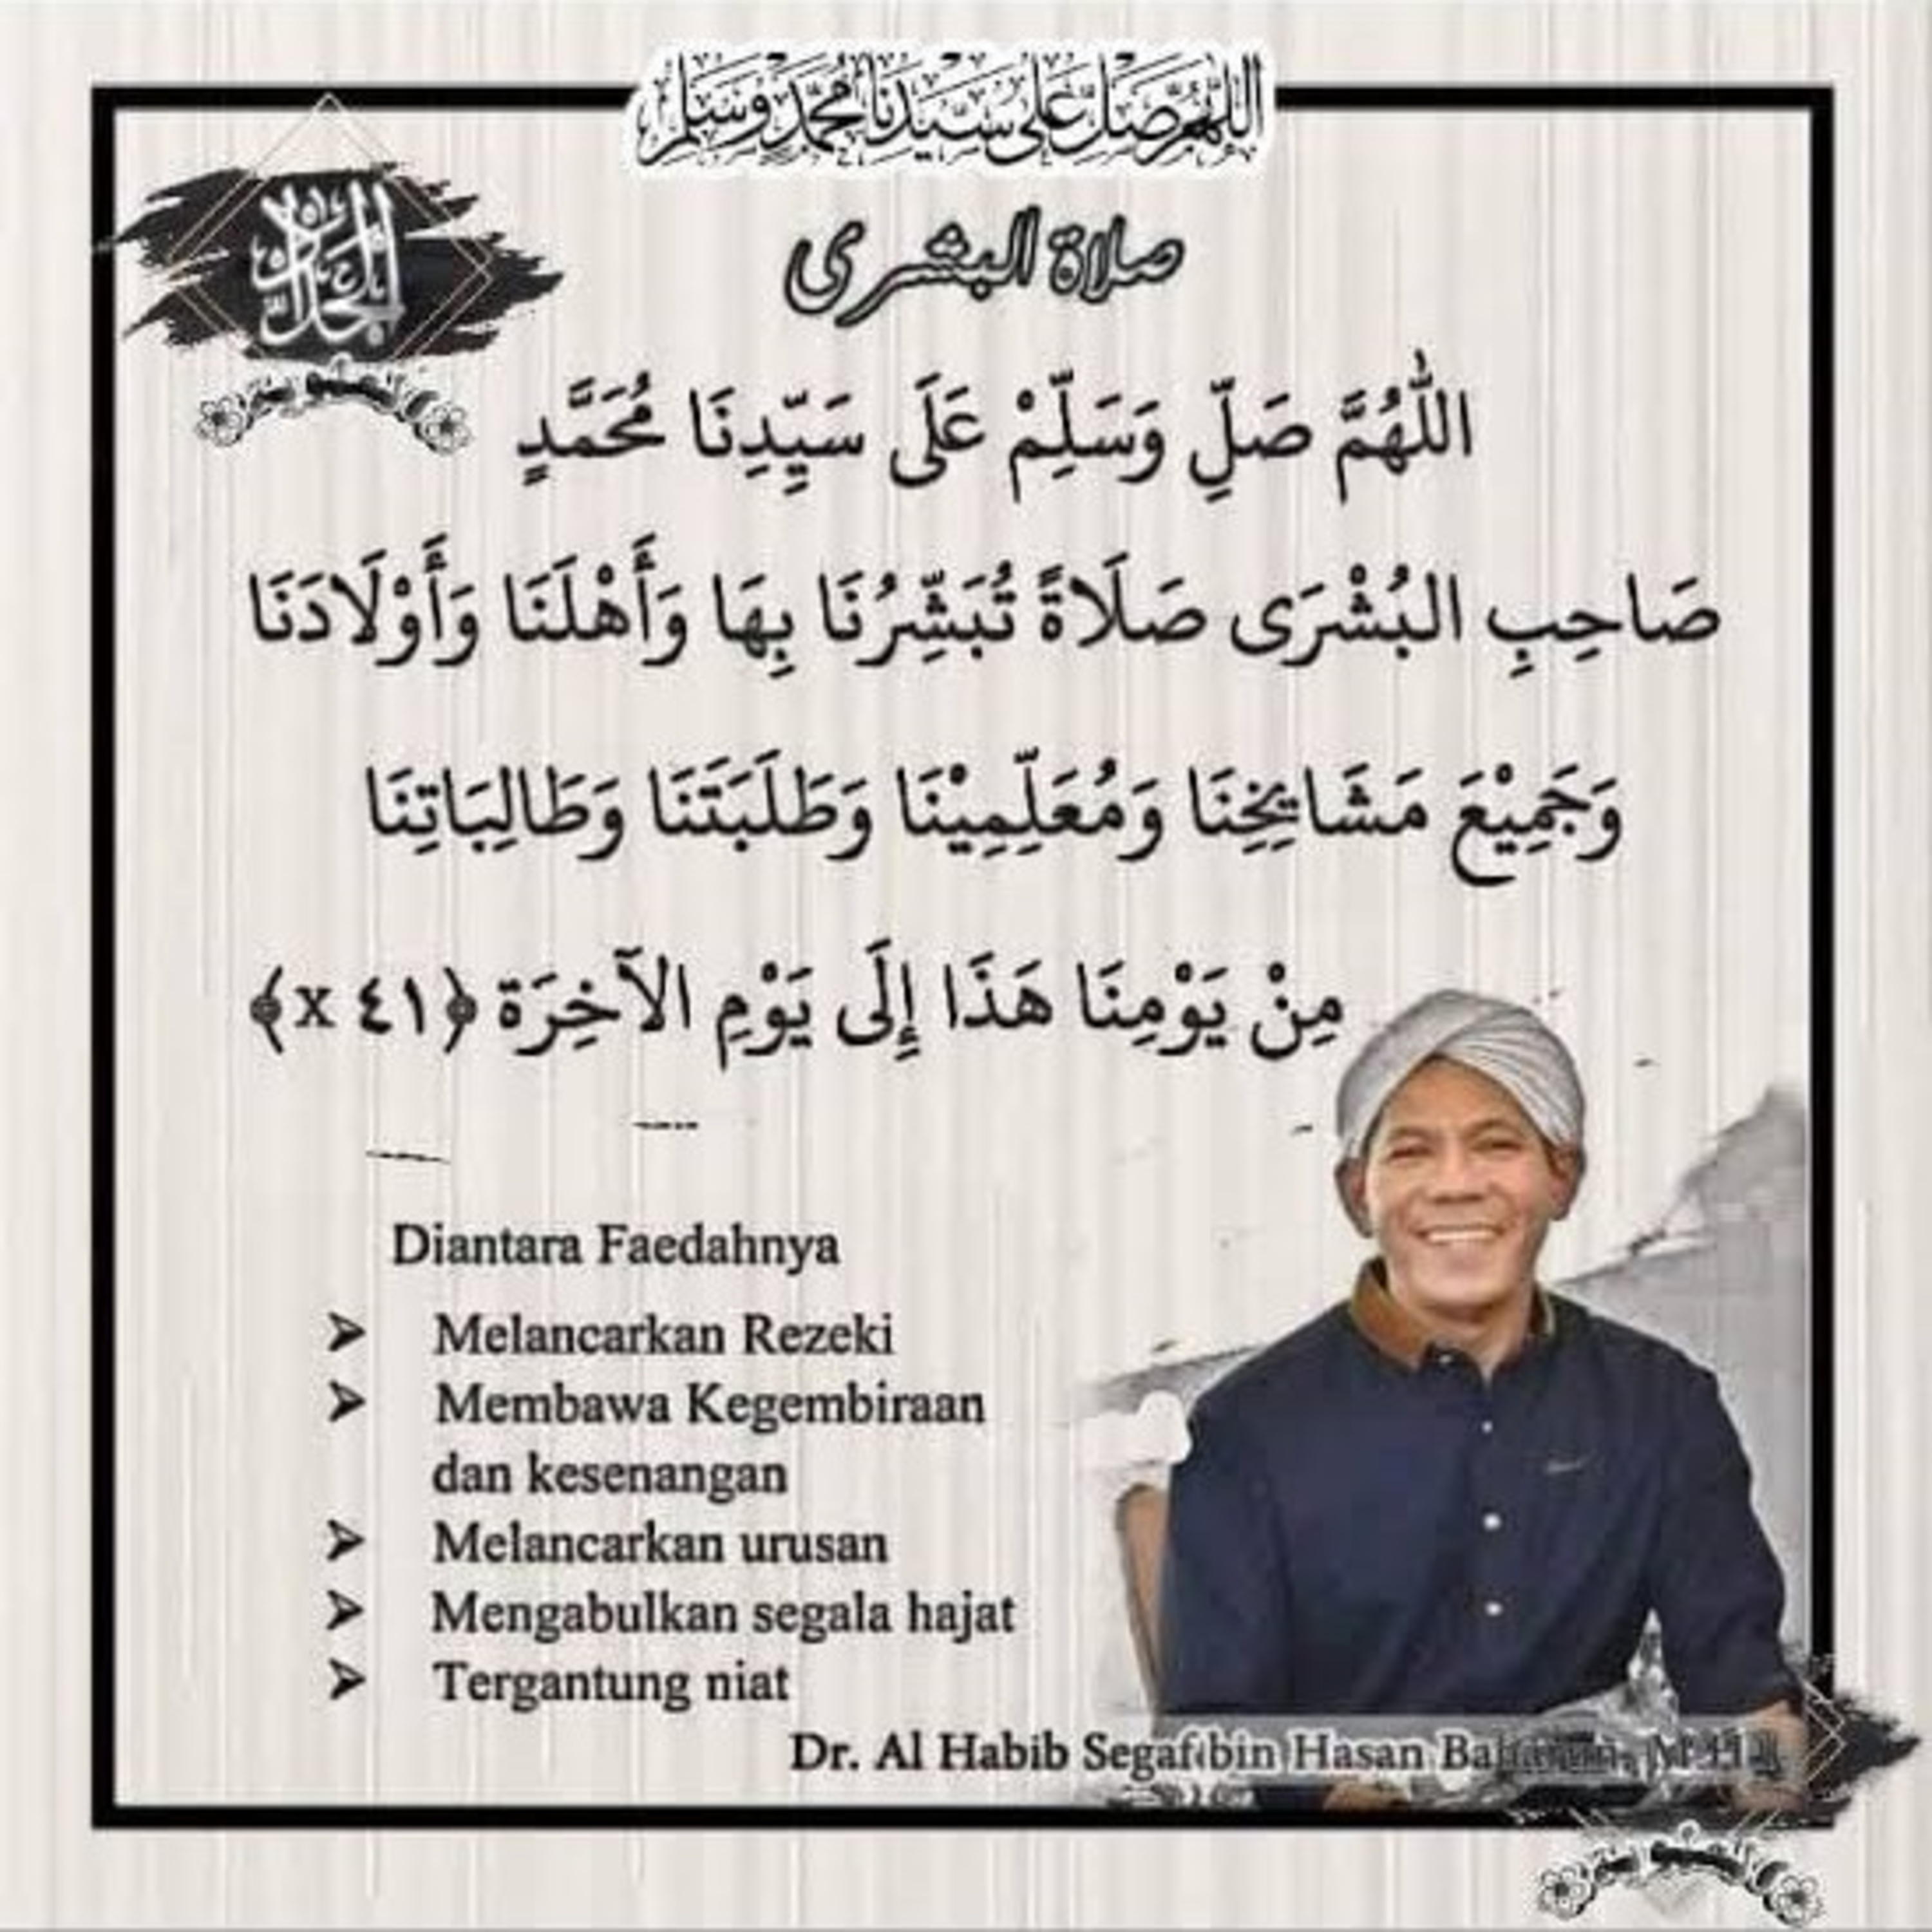 اللّٰهُمَّ صَلِّ عَلَى سَيِّدِنَا مُحَمَّدٍ وَسَلِّمْ
صلاة البشرى
اللّٰهُمَّ صَلِّ وَسَلِّمْ عَلَى سَيِّدِنَا مُحَمَّدٍ
صَاحِبِ البُشْرَى صَلَاةً تُبَشِّرُنَا بِهَا وَأَهْلَنَا وَأَوْلَادَنَا
وَجَمِيْعَ مَشَايِخِنَا وَمُعَلِّمِيْنَا وَطَلَبَتَنَا وَطَالِبَاتِنَا
مِنْ يَوْمِنَا هَذَا إِلَى يَوْمِ الآخِرَة ﴿٤١ x﴾
Diantara Faedahnya
➢ Melancarkan Rezeki
➢ Membawa Kegembiraan
dan kesenangan
➢ Melancarkan urusan
➢ Mengabulkan segala hajat
➢ Tergantung niat
Dr. Al Habib Segaf bin Hasan Baharun, M.H.I